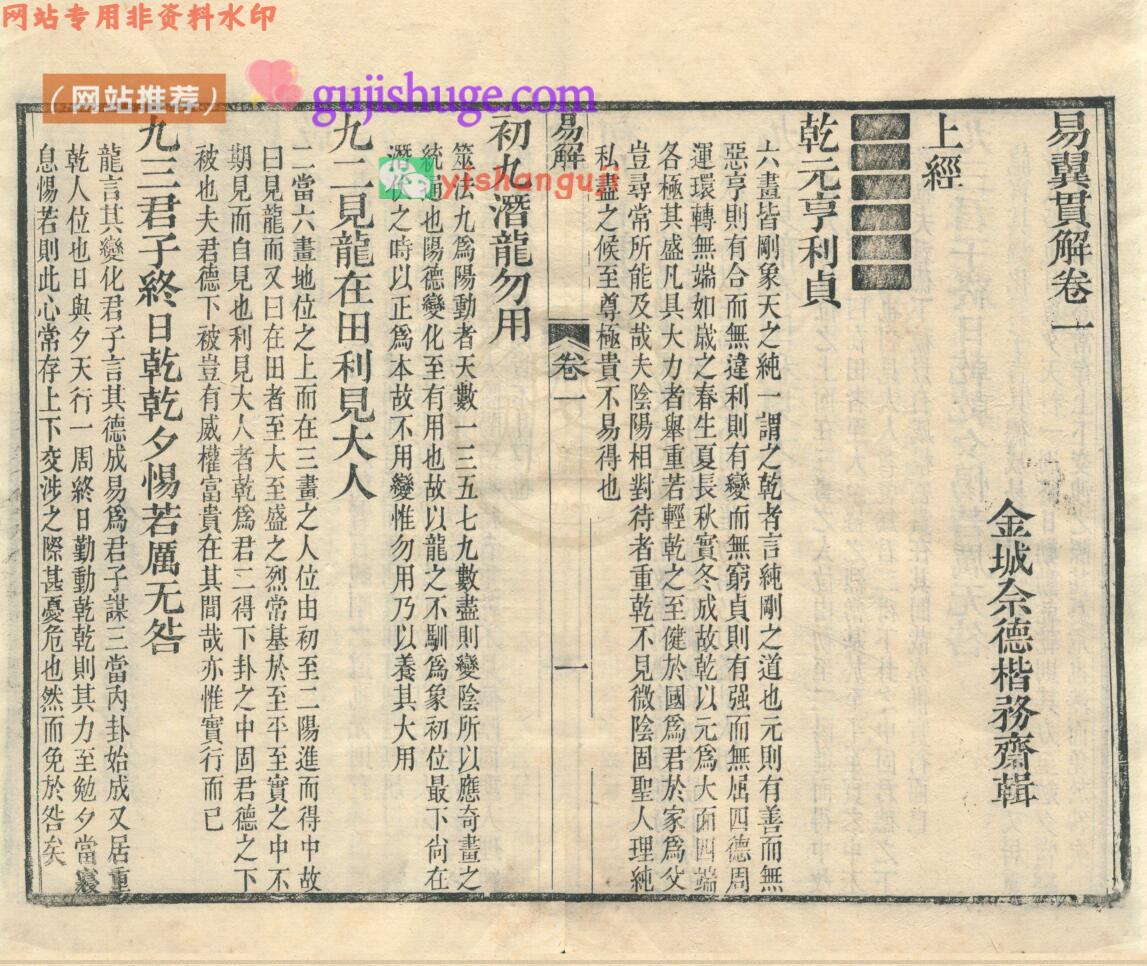 网站专用非资料水印
(网站推荐)
gujishuge.com
yishanguji
易翼貫解卷一
金城佘德楷務齋輯
上經
乾元亨利貞
六畫皆剛象天之純一謂之乾者言純剛之道也元則有善而無
惡亨則有合而無違利則有變而無窮貞則有强而無屈四德周
運環轉無端如歲之春生夏長秋實冬成故乾以元爲大而四端
各極其盛凡具大力者舉重若輕乾之至健於國爲君於家爲父
豈尋常所能及哉夫陰陽相對待者重乾不見微陰固聖人理純
私盡之候至尊極貴不易得也
易解
卷一
一
初九潛龍勿用
筮法九爲陽動者天數一三五七九數盡則變陰所以應奇畫之
統通也陽德變化至有用也故以龍之不馴爲象初位最下尙在
潛伏之時以正爲本故不用變惟勿用乃以養其大用
九二見龍在田利見大人
二當六畫地位之上而在三畫之人位由初至二陽進而得中故
曰見龍而又曰在田者至大至盛之烈常基於至平至實之中不
期見而自見也利見大人者乾爲君二得下卦之中固君德之下
被也夫君德下被豈有威權富貴在其間哉亦惟實行而已
九三君子終日乾乾夕惕若厲无咎
龍言其變化君子言其德成易爲君子謀三當內卦始成又居重
乾人位也日與夕天行一周終日勤動乾乾則其力至勉夕當寢
息惕若則此心常存上下交涉之際甚憂危也然而免於咎矣